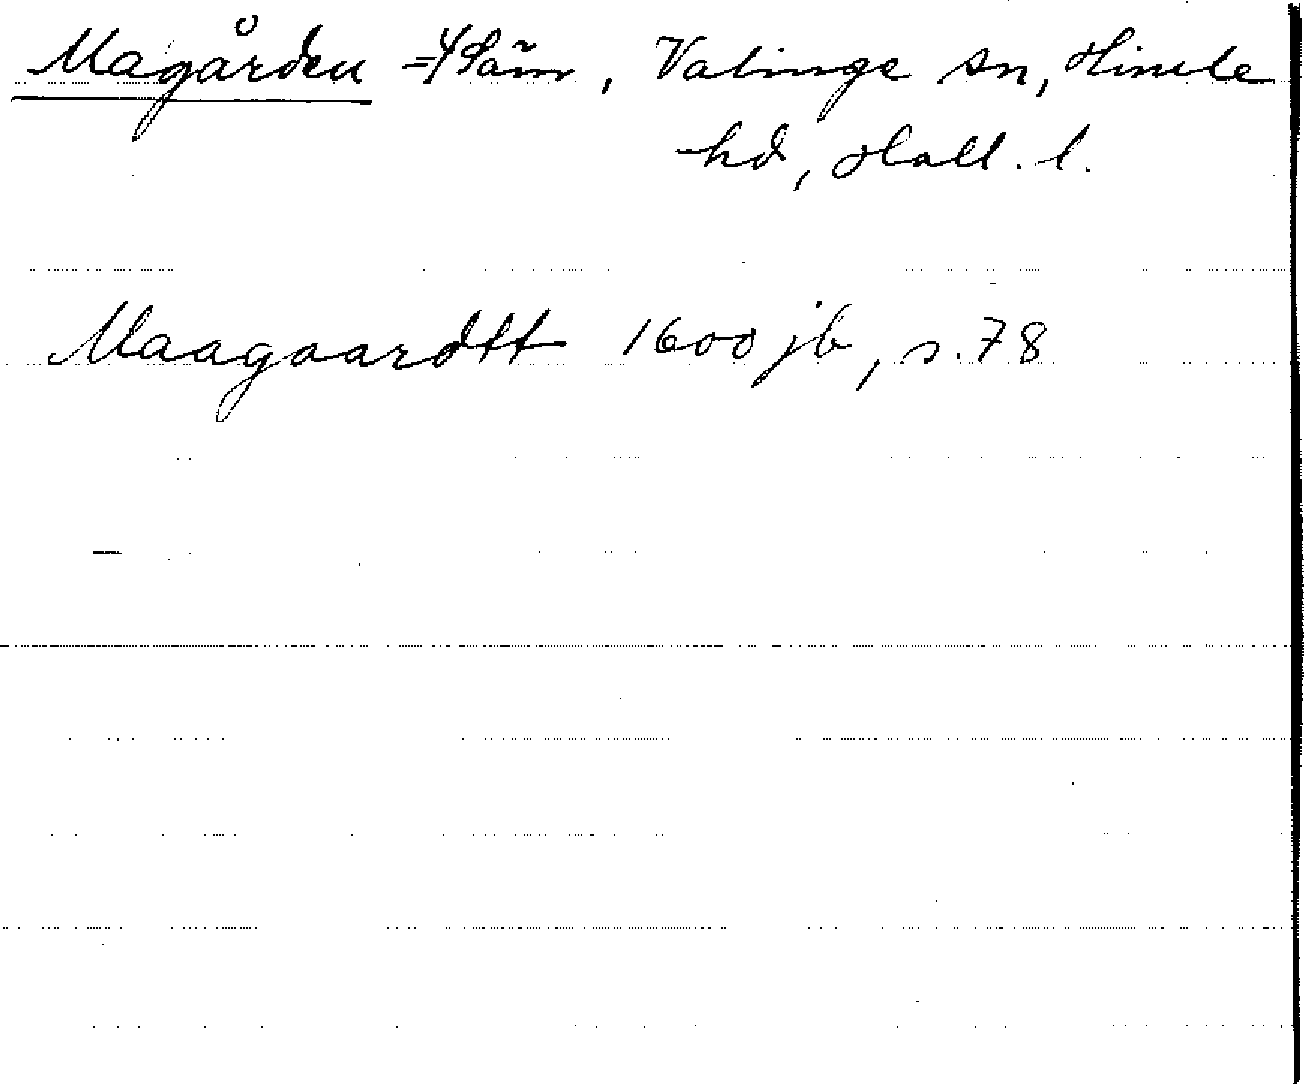 Magården =4 Säm, Valinge sn, Himle
hd, Hall. l.
Maagaardtt 1600 jb, s. 78